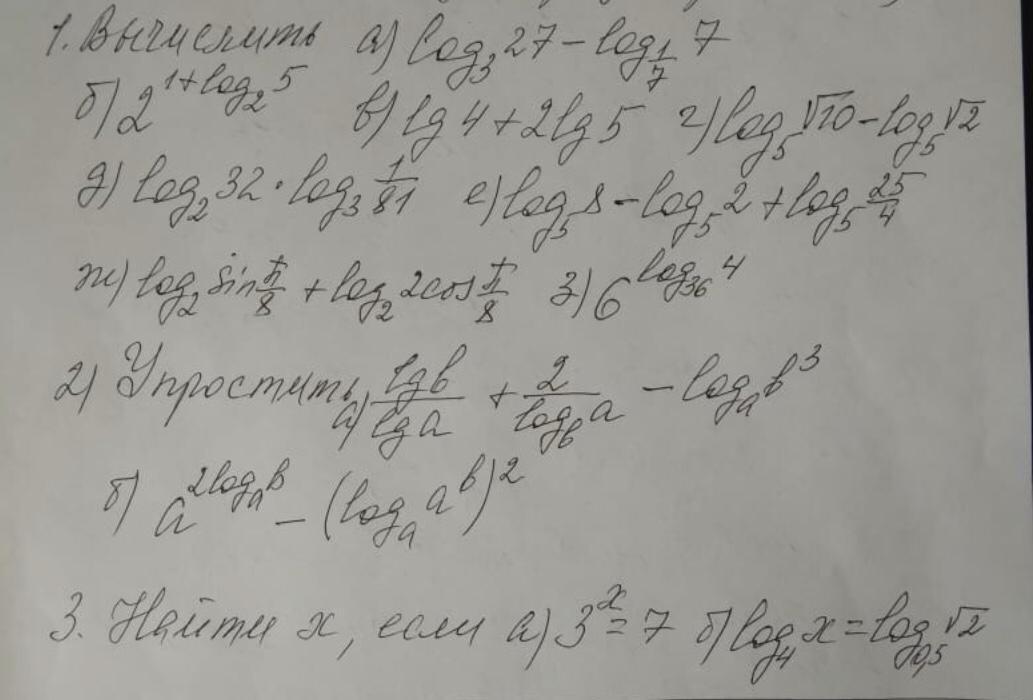 1. Вычислить а) log₃ 27 − log_{1/7} 7
б) 2^{1+log₂ 5} в) lg 4 + 2 lg 5 г) log₅ √10 − log₅ √2
д) log₂ 32 · log₃ 1/81 е) log₅ 8 − log₅ 2 + log₅ 25/4
ж) log₂ sin π/8 + log₂ 2cos π/8 з) 6^{log₃₆ 4}
2) Упростить а) lg b/lg a + 2/log_b a − log_a b³
б) a^{2log_a b} − (log_a a^b)²
3. Найти x, если а) 3^x = 7 б) log₄ x = log_{0,5} √2